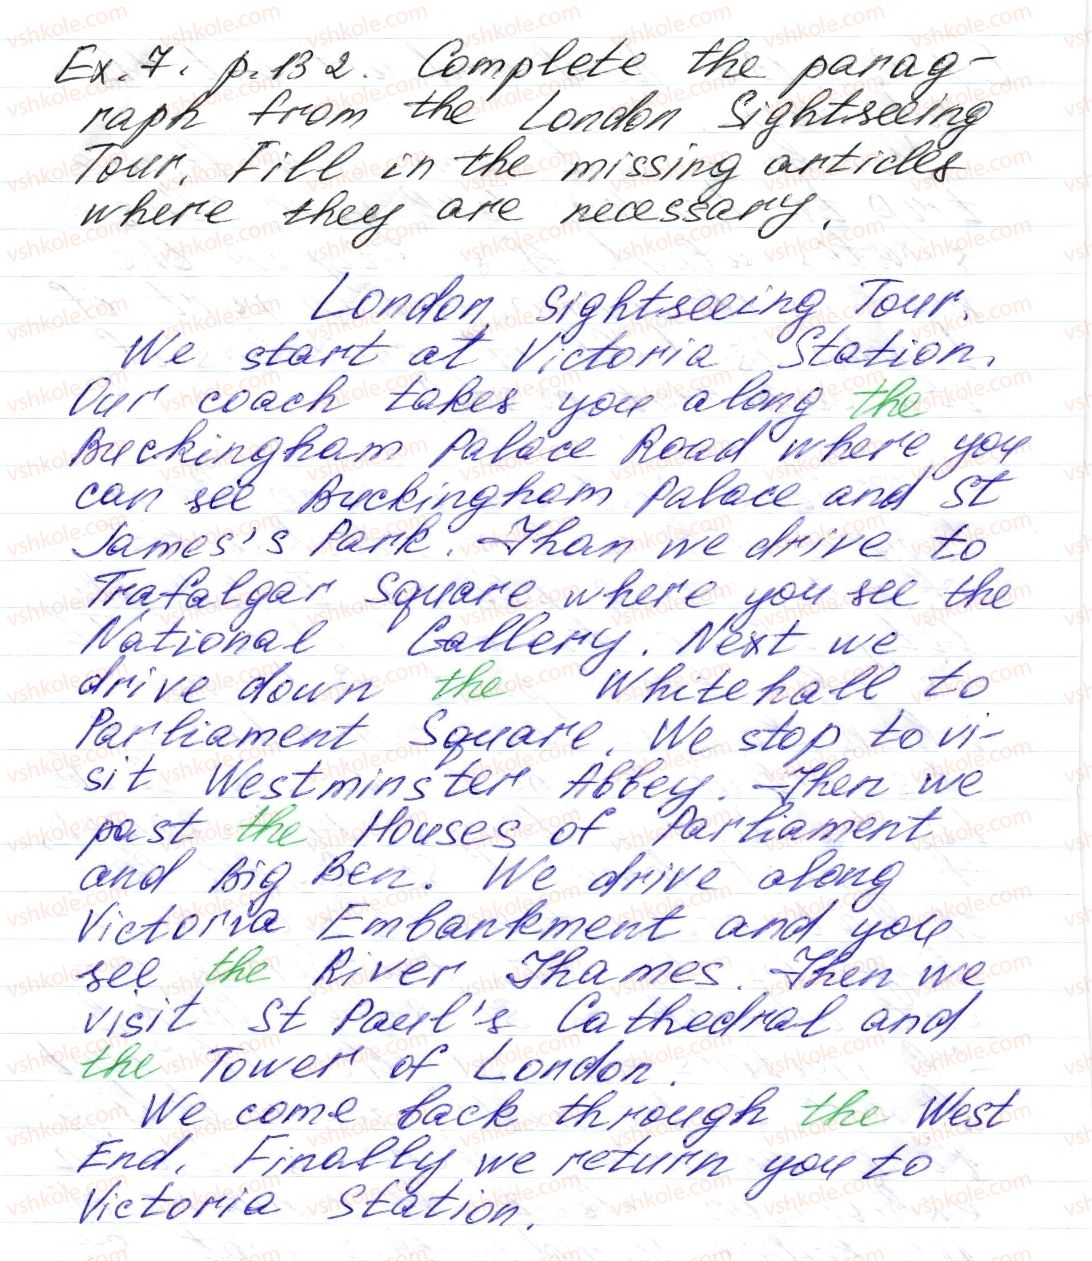 Ex. 7. p. 132. Complete the parag-
raph from the London Sightseeing
Tour. Fill in the missing articles
where they are necessary.
London Sightseeing Tour.
We start at Victoria Station.
Our coach takes you along the
Buckingham Palace Road where you
can see Buckingham Palace and St
James's Park. Than we drive to
Trafalgar Square where you see the
National Gallery. Next we
drive down the Whitehall to
Parliament Square. We stop to vi-
sit Westminster Abbey. Then we
past the Houses of Parliament
and Big Ben. We drive along
Victoria Embankment and you
see the River Thames. Then we
visit St Paul's Cathedral and
the Tower of London.
We come back through the West
End. Finally we return you to
Victoria Station.